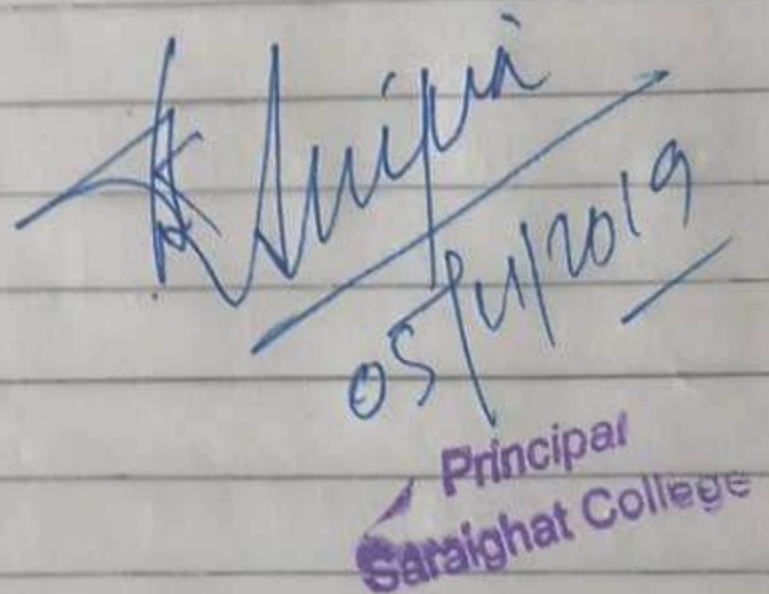 05/11/2019
Principal
Saraighat College